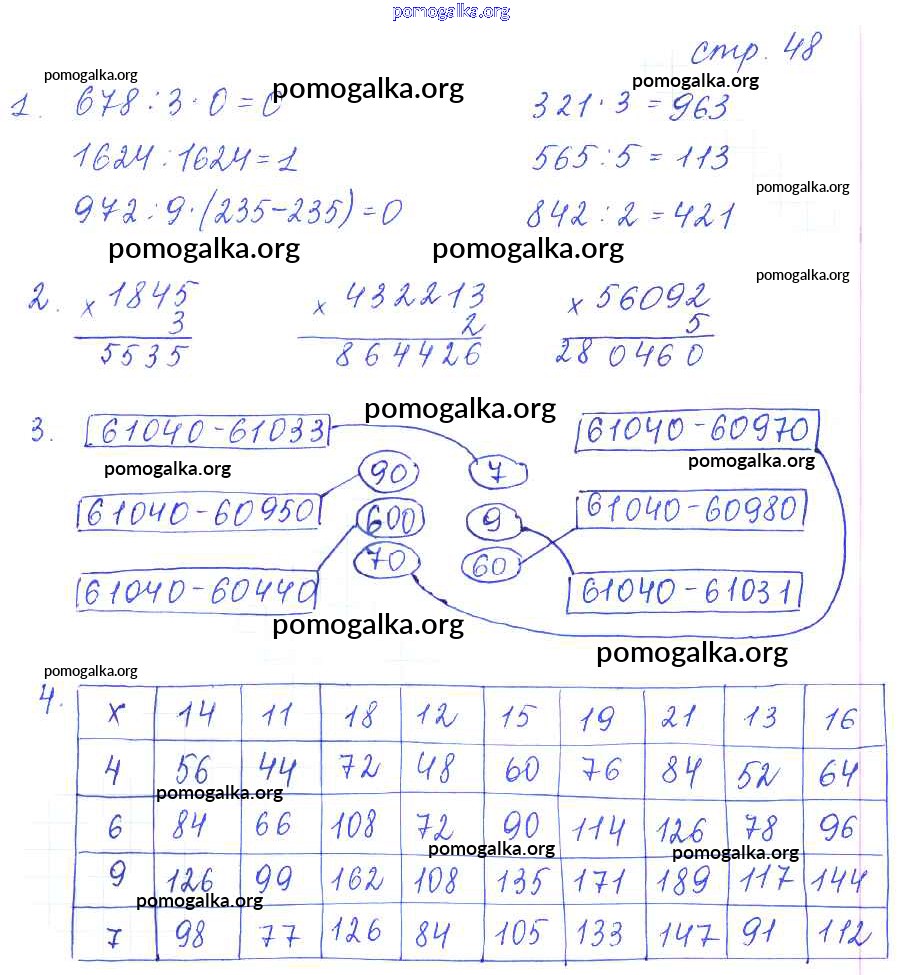 pomogalka.org
стр. 48
pomogalka.org pomogalka.org pomogalka.org
1. 678 : 3 · 0 = 0 321 · 3 = 963
1624 : 1624 = 1 565 : 5 = 113
pomogalka.org
972 : 9 · (235 - 235) = 0 842 : 2 = 421
pomogalka.org pomogalka.org
pomogalka.org
2. × 1845 × 432213 × 56092
3 2 5
5535 864426 280460
pomogalka.org
3. 61040 - 61033 61040 - 60970
pomogalka.org 90 7 pomogalka.org
61040 - 60950 600 9 61040 - 60980
70 60
61040 - 60440 61040 - 61031
pomogalka.org
pomogalka.org
pomogalka.org
4. × 14 11 18 12 15 19 21 13 16
4 56 44 72 48 60 76 84 52 64
pomogalka.org
6 84 66 108 72 90 114 126 78 96
pomogalka.org pomogalka.org
9 126 99 162 108 135 171 189 117 144
pomogalka.org
7 98 77 126 84 105 133 147 91 112